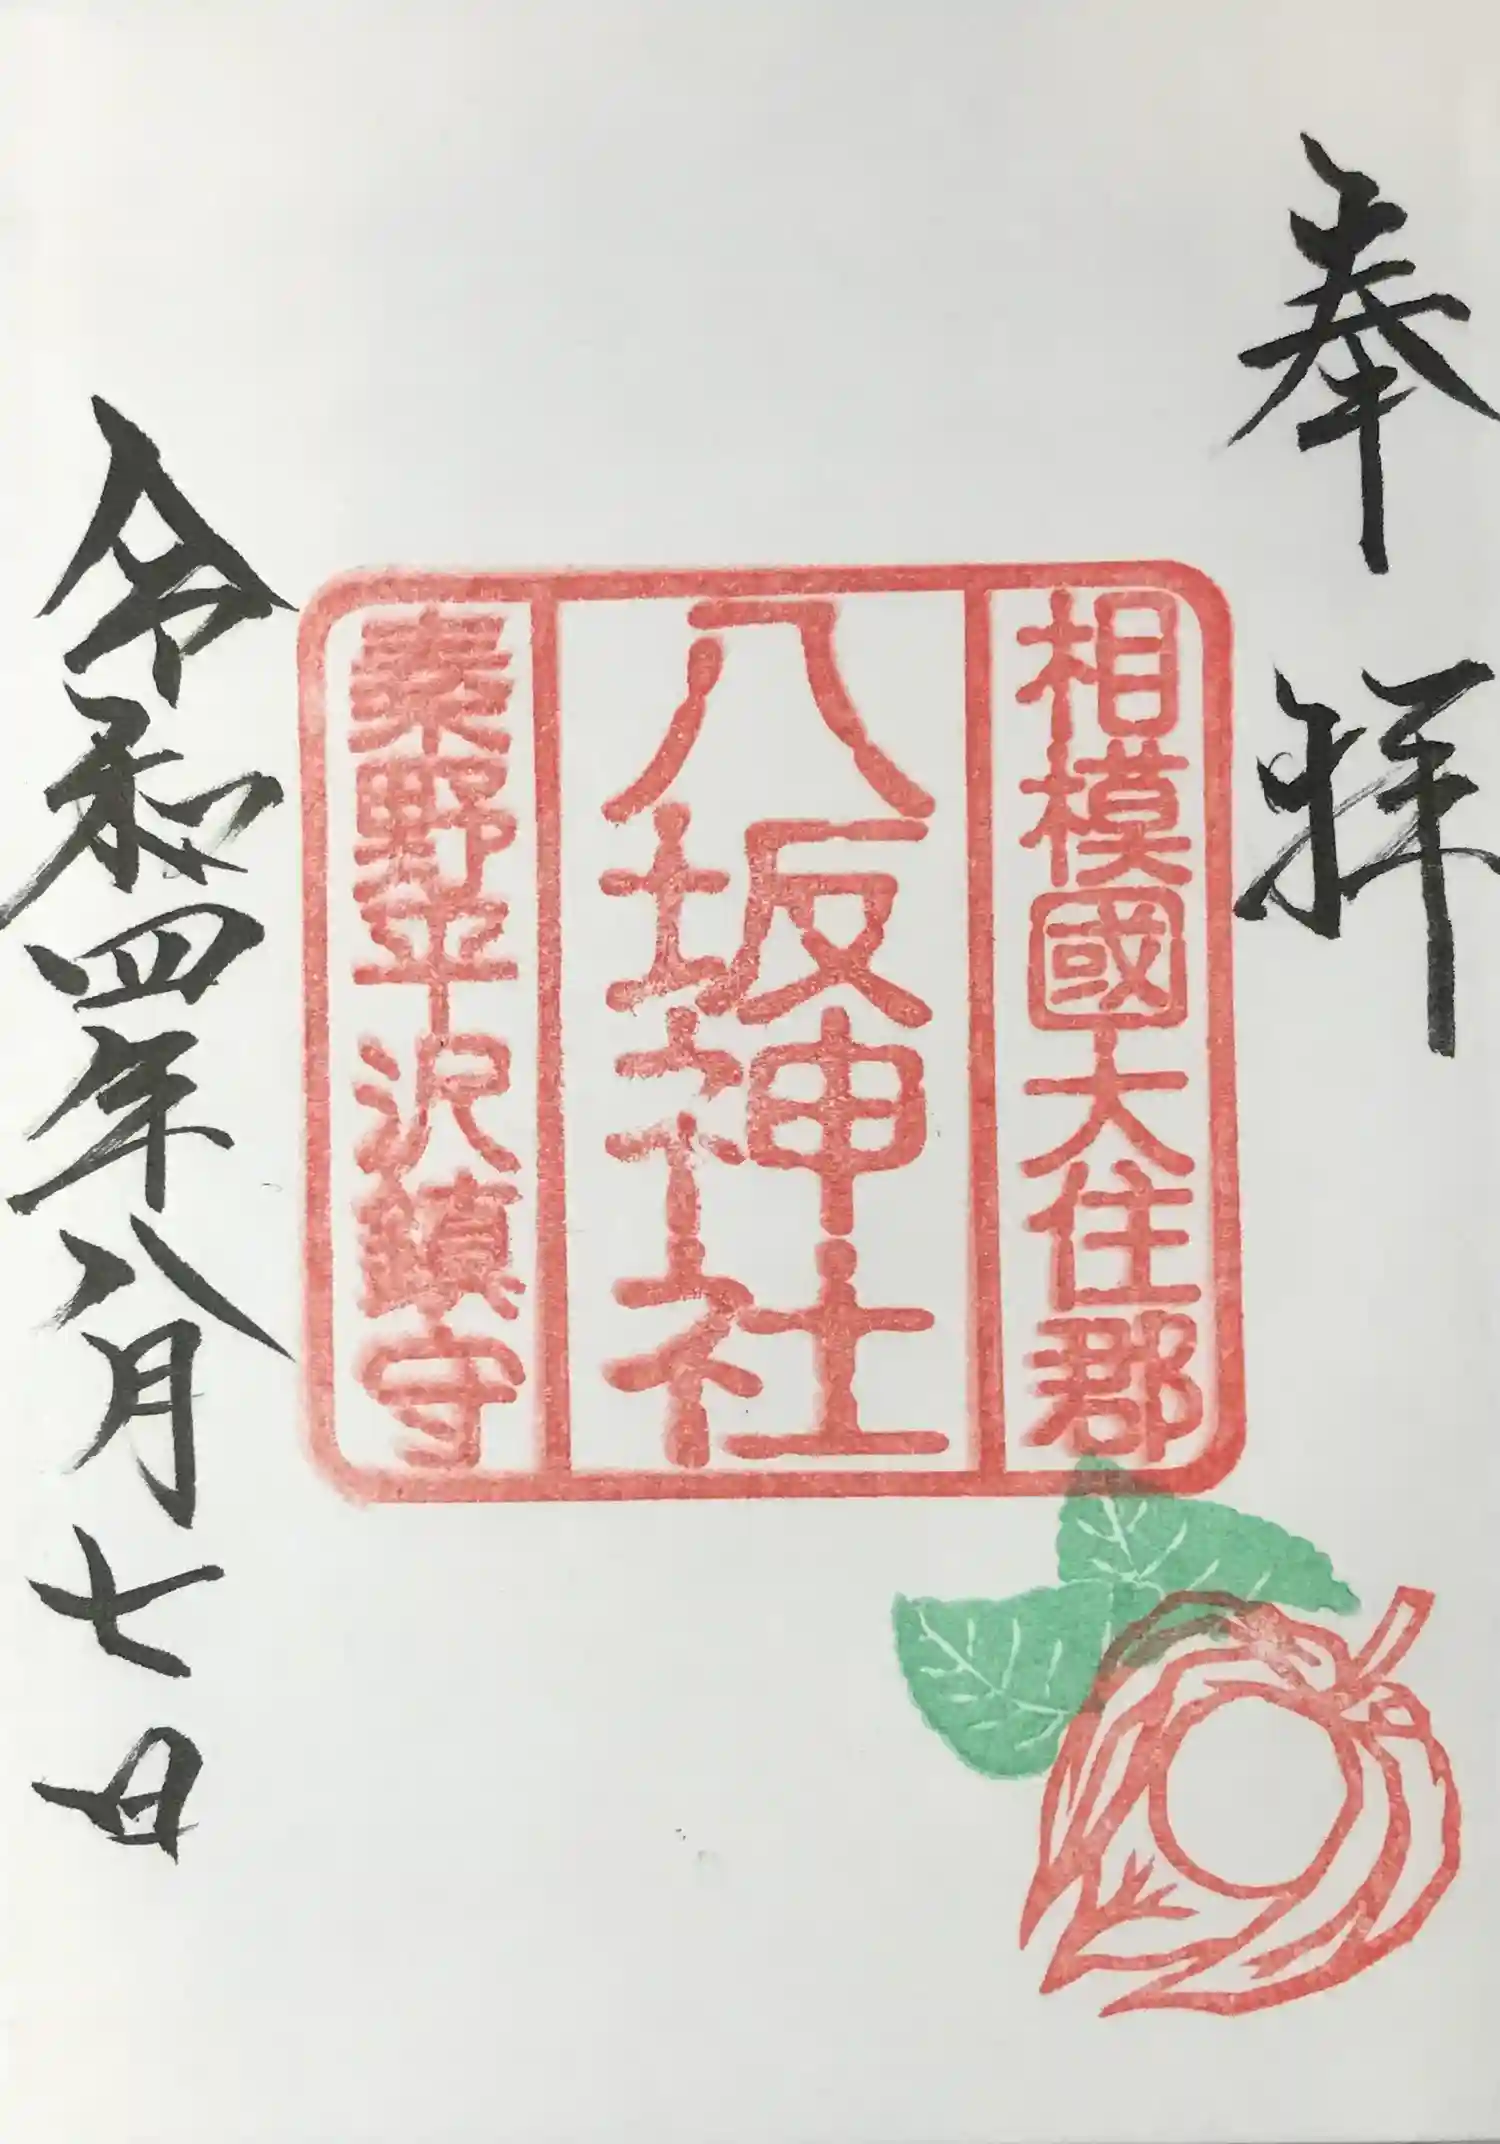 奉拝
相模國大住郡
八坂神社
秦野平沢鎮守
令和四年八月七日